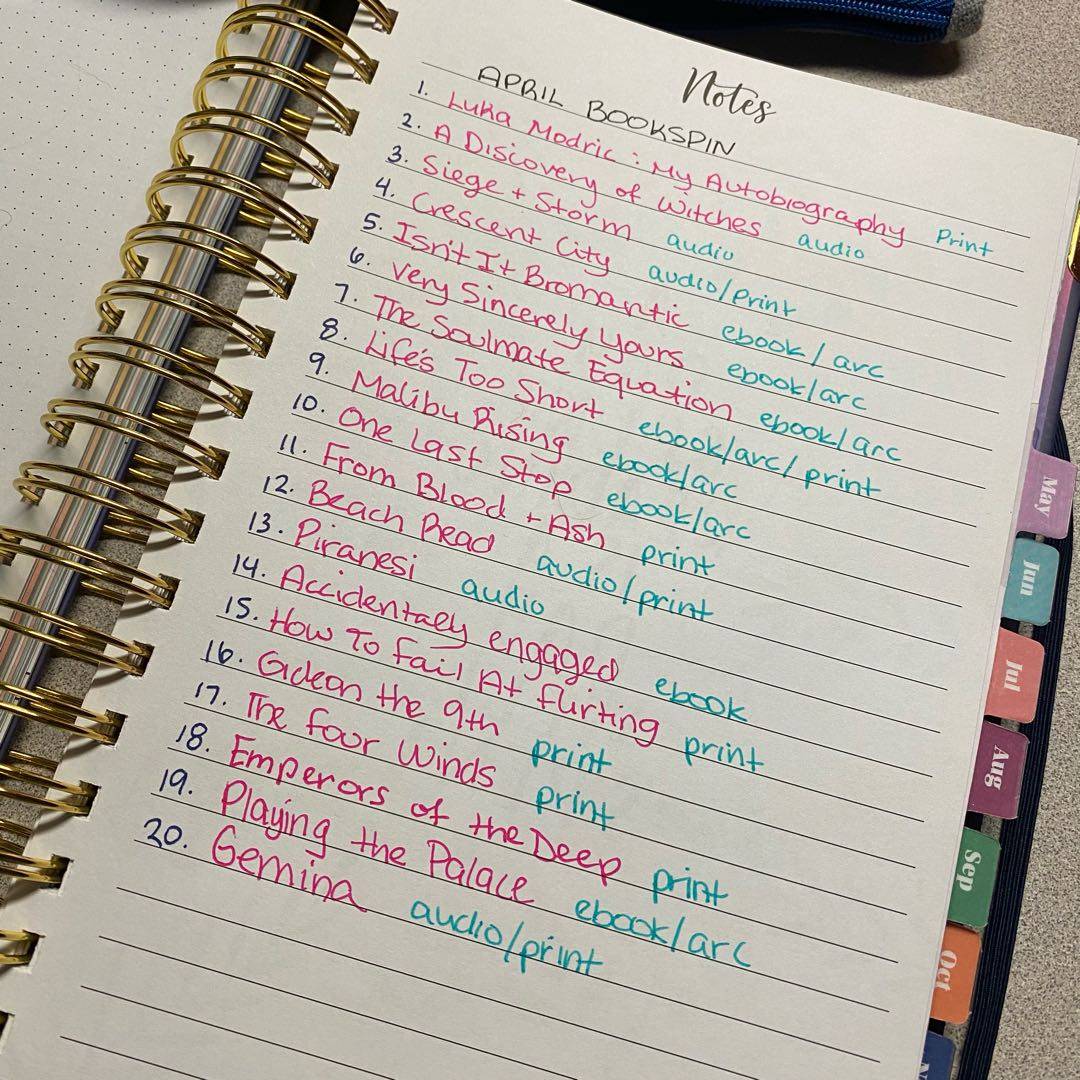 Notes
APRIL BOOKSPIN
1. Luka Modric : My Autobiography Print
2. A Discovery of Witches audio
3. Siege + Storm audio
4. Crescent City audio/print
5. Isn't It Bromantic ebook/arc
6. Very Sincerely Yours ebook/arc
7. The Soulmate Equation ebook/arc
8. Life's Too Short ebook/arc/print
9. Malibu Rising ebook/arc
10. One Last Stop ebook/arc
11. From Blood + Ash print
12. Beach Read audio/print
13. Piranesi audio
14. Accidentally engaged ebook
15. How To Fail At flirting print
16. Gideon the 9th print
17. The four Winds print
18. Emperors of the Deep print
19. Playing the Palace ebook/arc
20. Gemina audio/print
May
Jun
Jul
Aug
Sep
Oct